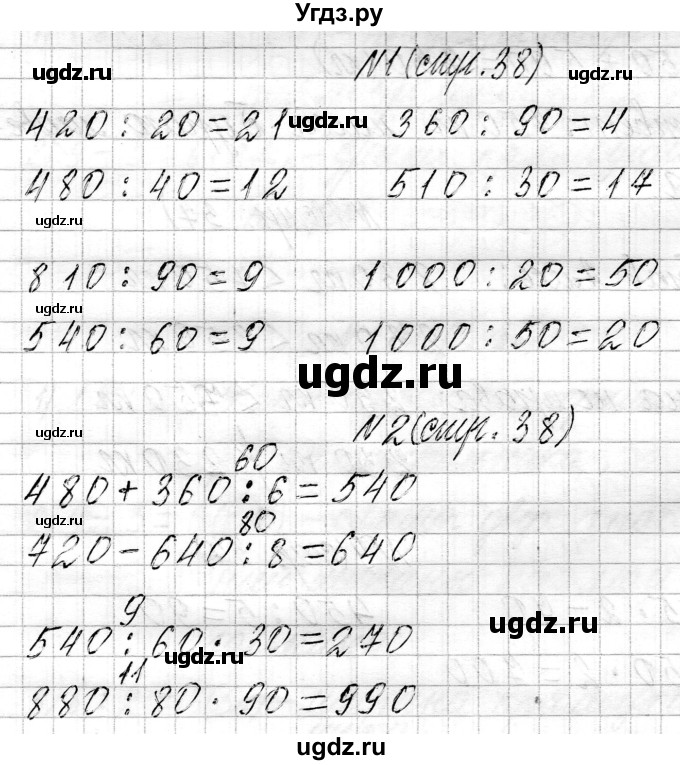 Угдз.ру
ugdz.ru
№1 (стр. 38)
420 : 20 = 21 ugdz.ru 360 : 90 = 4
ugdz.ru
480 : 40 = 12 510 : 30 = 17
ugdz.ru
810 : 90 = 9 1000 : 20 = 50
ugdz.ru
540 : 60 = 9 1000 : 50 = 20
ugdz.ru
ugdz.ru
№2 (стр. 38)
60
480 + 360 : 6 = 540
ugdz.ru
80
720 - 640 : 8 = 640
9
ugdz.ru
540 : 60 · 30 = 270
ugdz.ru
11
880 : 80 · 90 = 990
ugdz.ru
ugdz.ru